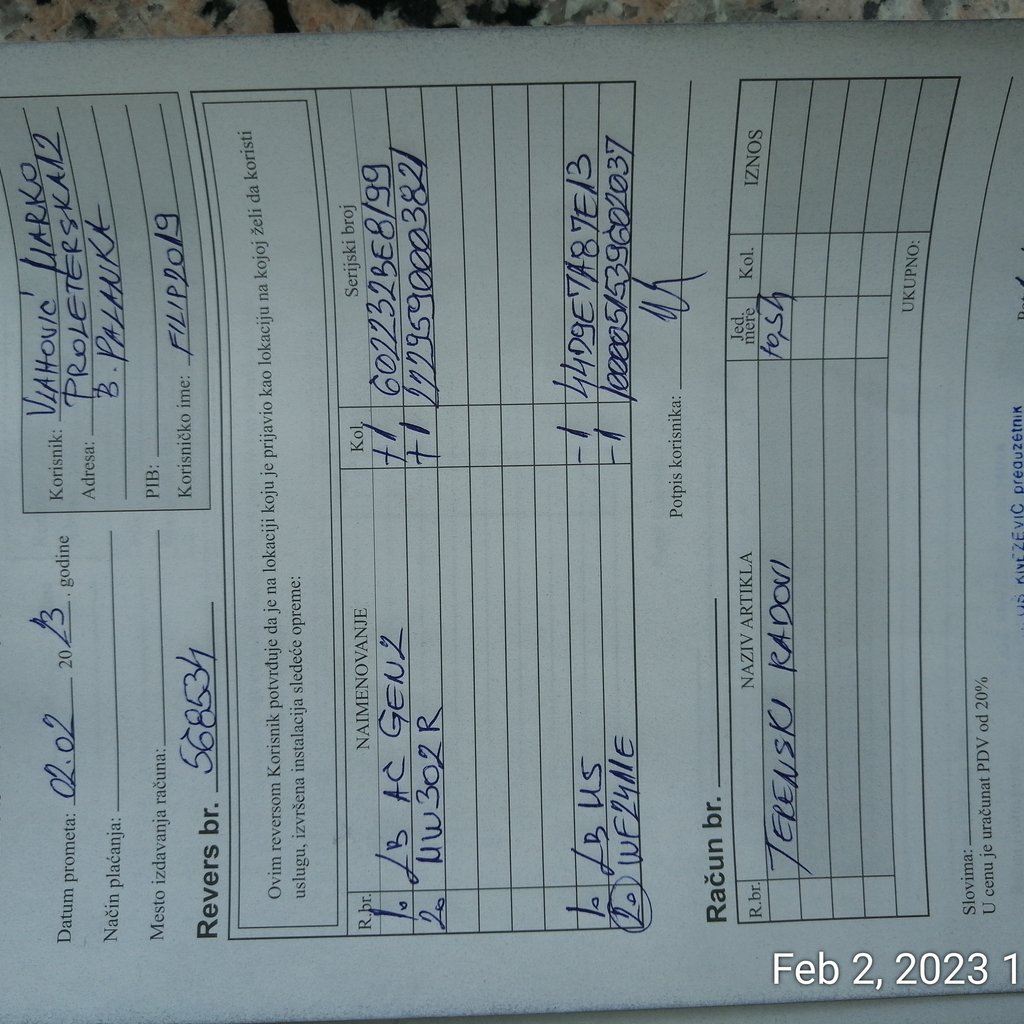 Korisnik: VLAHOVIĆ MARKO
Adresa: PROLETERSKA 12
B. PALANKA
PIB:
Korisničko ime: FILIP2019
Datum prometa: 02.02 2023. godine
Način plaćanja:
Mesto izdavanja računa:
Revers br. 568534
Ovim reversom Korisnik potvrđuje da je na lokaciji koju je prijavio kao lokaciju na kojoj želi da koristi
uslugu, izvršena instalacija sledeće opreme:
R.br. NAIMENOVANJE Kol. Serijski broj
1. LB AC GEN2 +1 602232BE8199
2. MW302R +1 2229590003821
1. LB M5 -1 44D9E7A87E13
2. WF2411E -1
Potpis korisnika:
Račun br.
R.br. NAZIV ARTIKLA Jed. mere Kol. IZNOS
TERENSKI RADOVI
UKUPNO:
Slovima:
U cenu je uračunat PDV od 20%
KNEŽEVIĆ preduzetnik
Feb 2, 2023 1